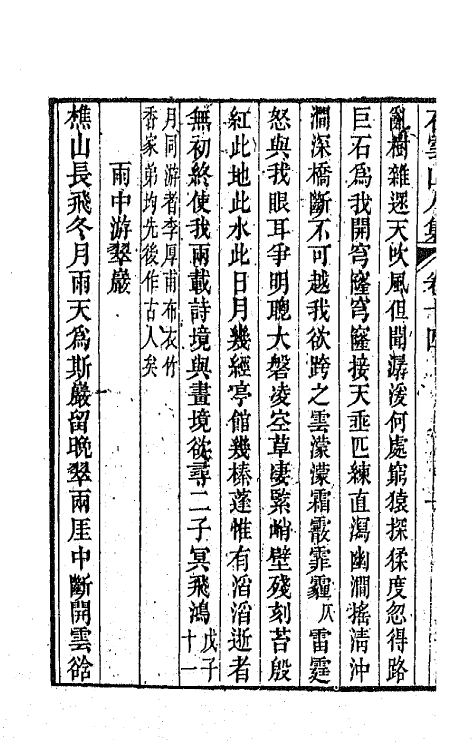 石雲山人集 卷十四
亂樹雜遝天吹風但聞潺湲何處窮猿探猱度忽得路
巨石為我開穹窿穹窿接天垂匹練直瀉幽澗搖清沖
澗深橋斷不可越我欲跨之雲濛濛霜霰霏霾仄雷霆
怒與我眼耳爭明聰大磐凌空草棲縈峭壁殘刻苔殷
紅此地此水此日月幾經亭館幾榛蓬惟有滔滔逝者
無初終使我兩載詩境與畫境欲尋二子冥飛鴻戊子十一
月同游者李厚甫布衣竹
香家弟均先後作古人矣
雨中游翠巖
樵山長飛冬月雨天為斯巖留晚翠兩厓中斷開雲谽